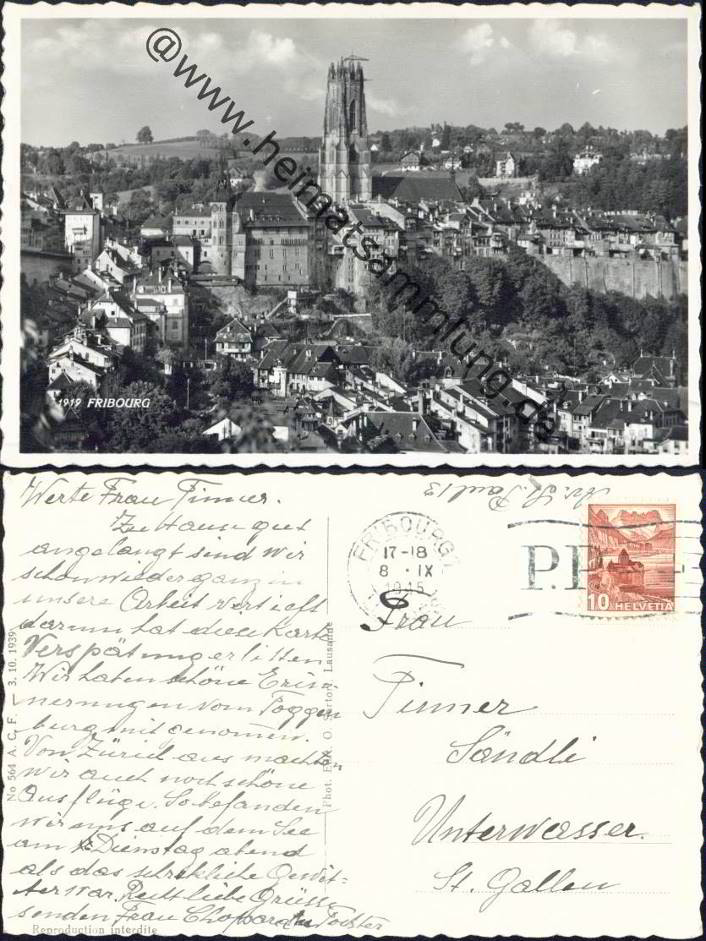 @www.heimatsammlung.de
1919 FRIBOURG
Werte Frau Tinner.
Zu Hause gut
angelangt sind wir
schon wieder ganz in
unsere Arbeit vertieft
darum hat diese Karte
Verspätung erlitten
Wir haben schöne Erin-
nerungen vom Toggen
burg mit genomen.
Von Zürich aus machten
wir auch noch schöne
Ausflüge. So befanden
wir uns auf dem See
am Dienstag abend
als das schrekliche Gewit-
ter war. Recht liebe Grüsse
senden Frau Chopard Tochter
Reproduction interdite
No 564 A. C. F. — 3. 10. 1939
Phot. Edit. O. Sartori, Lausanne
St. Paul 13
FRIBOURG 1
17-18
8 · IX
1945
P.P.
10 HELVETIA
Frau
Tinner
Sändli
Unterwasser.
St. Gallen